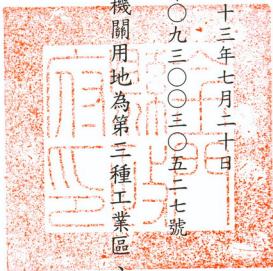 十三年七月二十日
○九三○○三○五二七號
機關用地為第三種工業區、